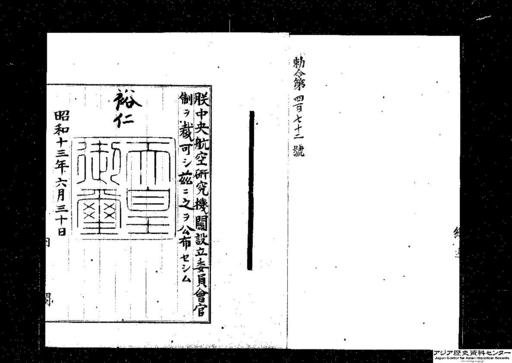 勅令第四百七十二號
朕中央航空研究機關設立委員會官
制ヲ裁可シ茲ニ之ヲ公布セシム
裕仁
天皇御璽
昭和十三年六月三十日
アジア歴史資料センター
Japan Center for Asian Historical Records